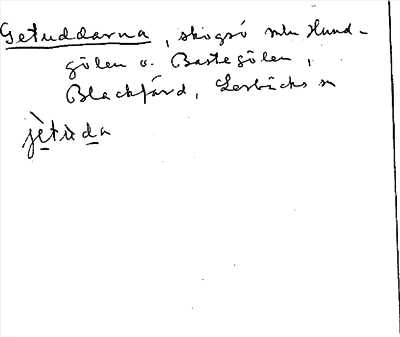 Getuddarna, skogsö mln Hund-
gölen o. Bastegölen,
Blackfärd, Lersbäcks sn
jètùda